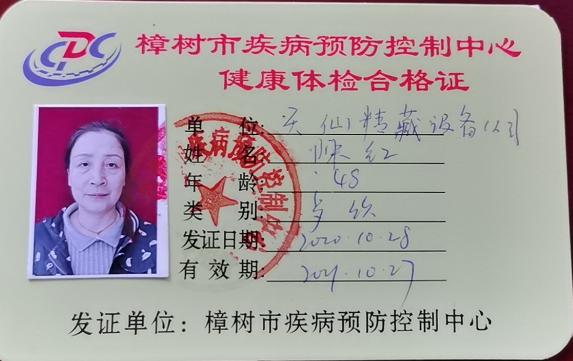 CDC
樟树市疾病预防控制中心
健康体检合格证
单位: 天仙精藏设备公司
姓名: 陈红
年龄: 48
类别: 乡饮
发证日期: 2020.10.28
有效期: 2021.10.27
发证单位: 樟树市疾病预防控制中心